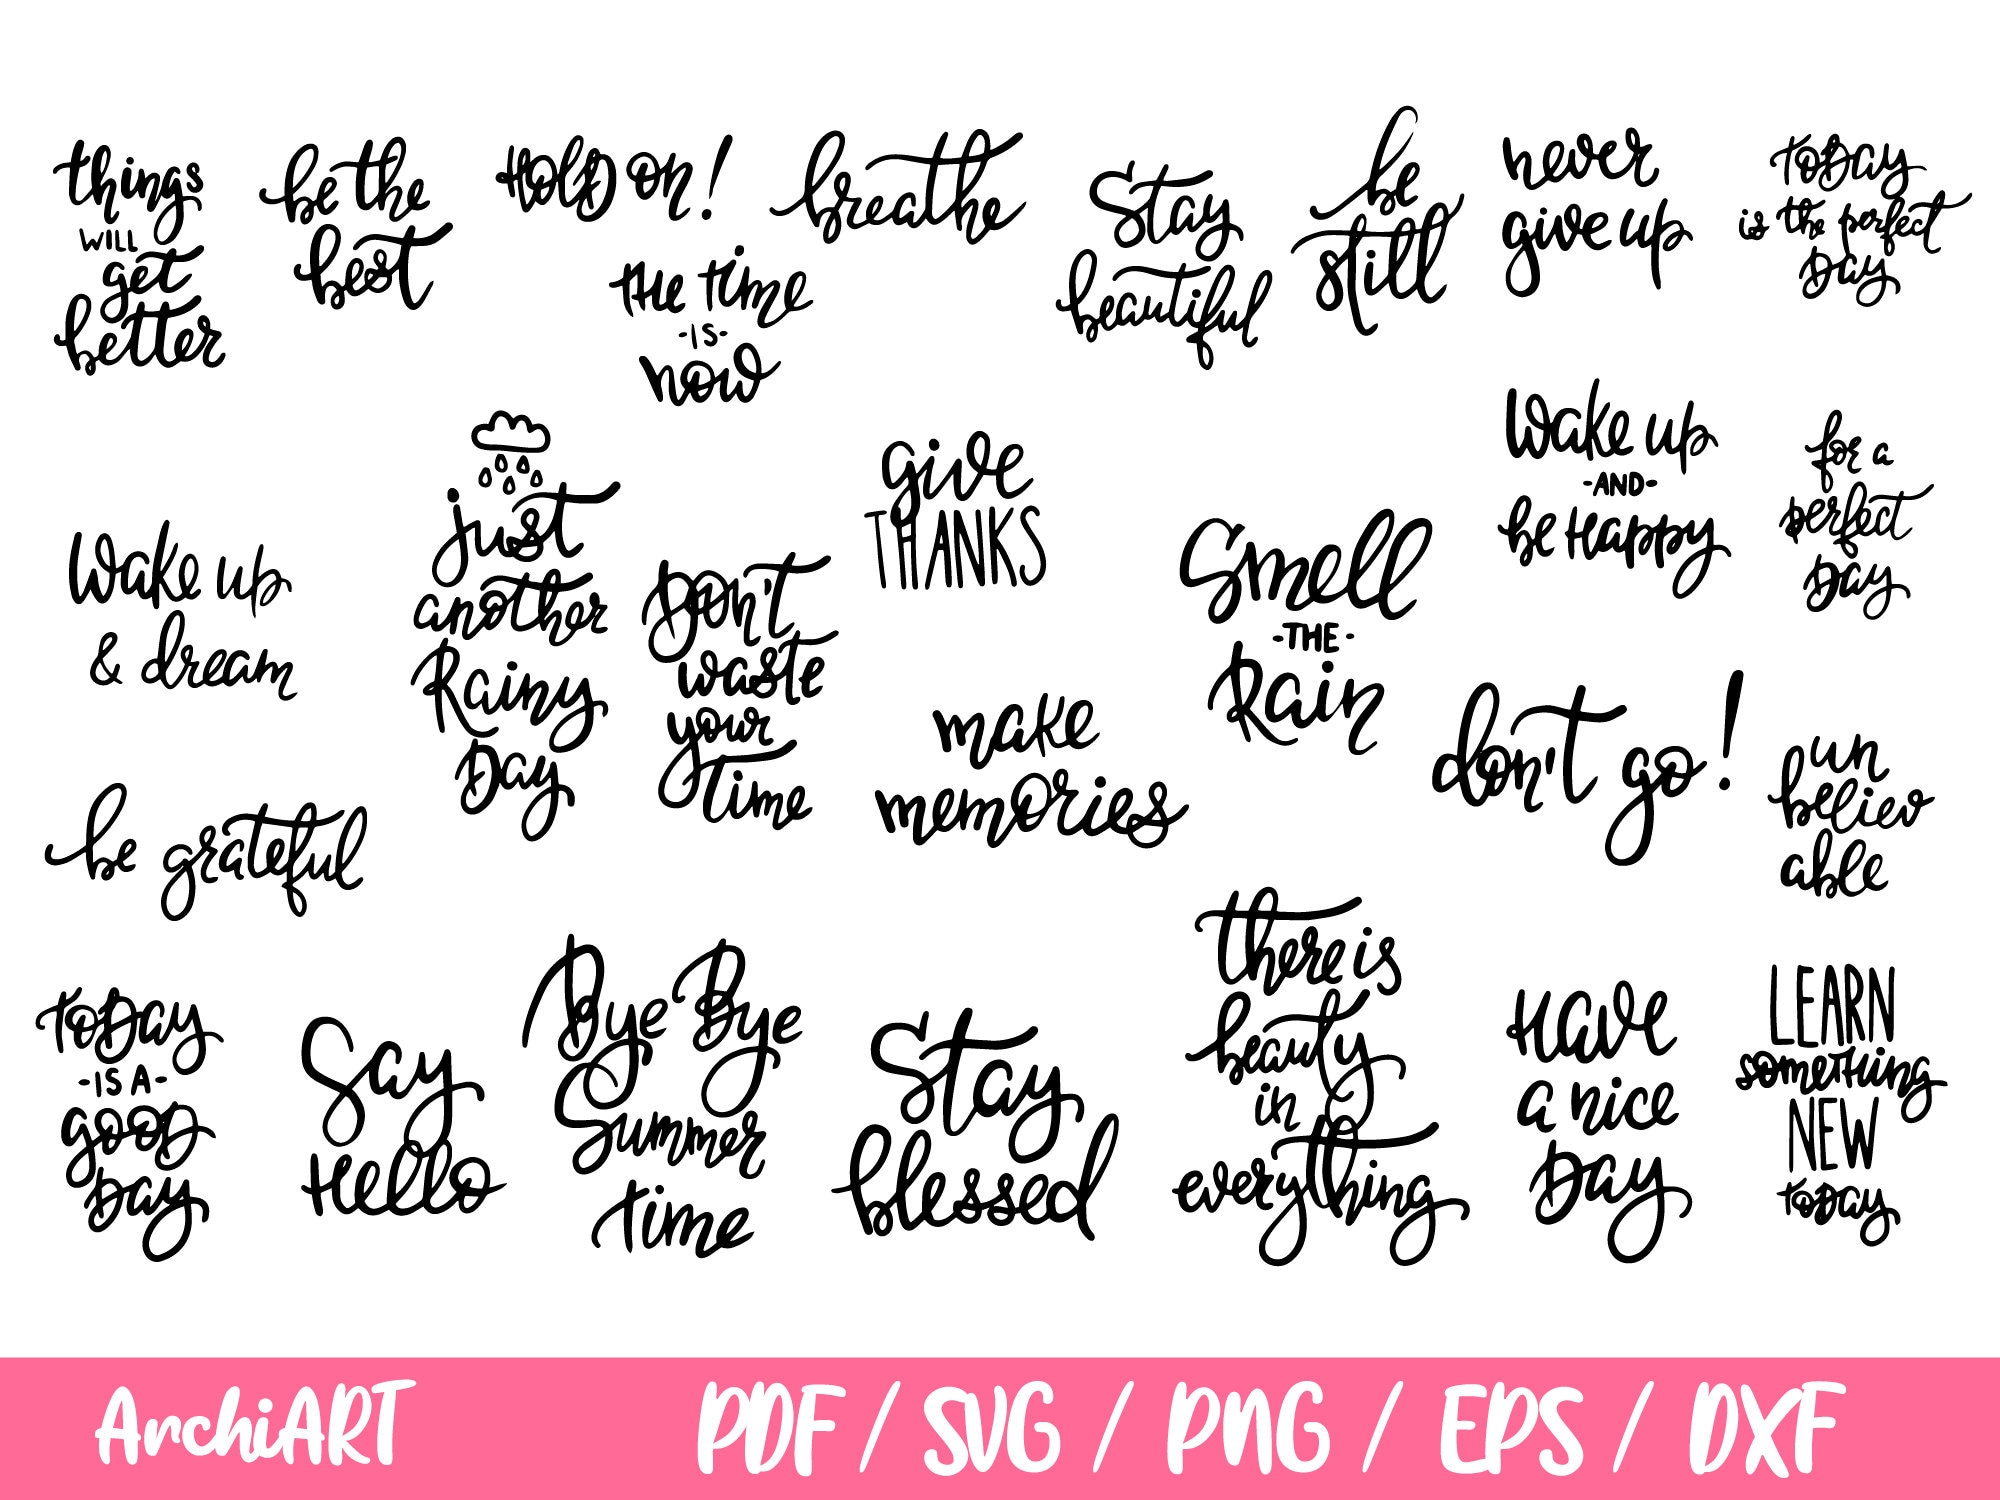 things
WILL
get
better
be the
best
HOLD on!
the time
-IS-
now
breathe
Stay
beautiful
be
still
never
give up
TODAY
is the perfect
DAY
Wake up
& dream
just
another
Rainy
Day
Don't
waste
your
time
give
THANKS
make
memories
Smell
-THE-
Rain
Wake up
-AND-
be Happy
for a
perfect
DAY
don't go!
un
believ
able
be grateful
TODAY
-IS A-
GOOD
DAY
Say
Hello
Bye Bye
Summer
time
Stay
blessed
there is
beauty
in
everything
Have
a nice
DAY
LEARN
something
NEW
TODAY
ArchiART
PDF / SVG / PNG / EPS / DXF